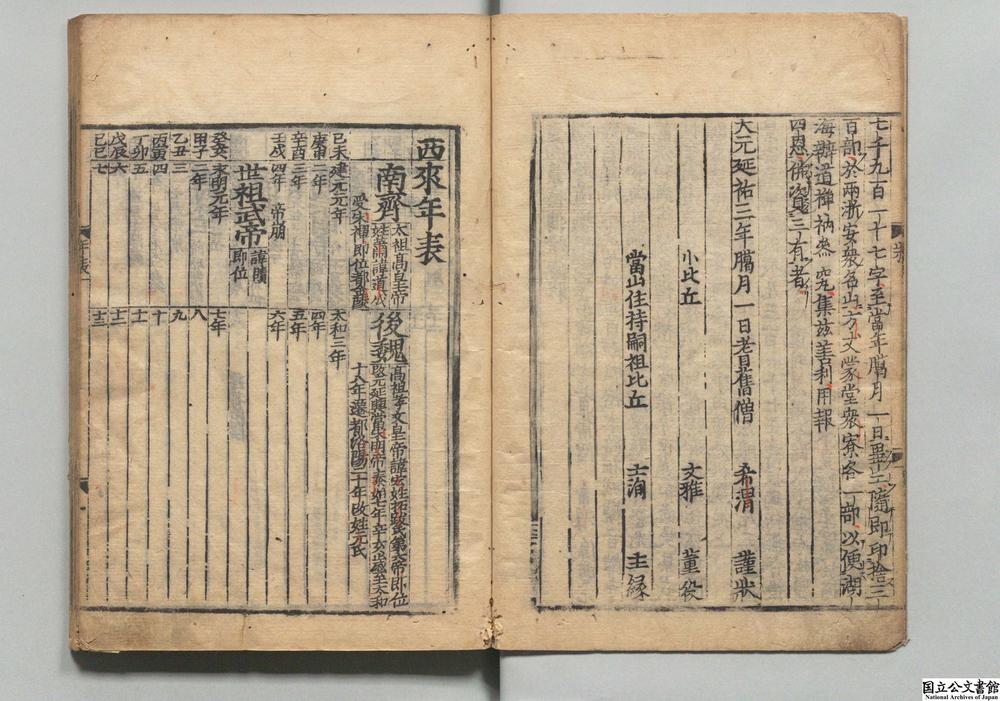 七千九百一十七字至當年臘月一日畢工隨即印捨三
百部於兩浙安衆名山方丈蒙堂衆寮各一部以便湖
海辦道禪衲參究集玆善利用報
四恩俻資三有者
大元延祐三年臘月一日耆舊僧 希渭 謹狀
小比丘 文雅 董役
當山住持嗣祖比丘 士洵 主縁
西來年表
南齊 太祖高皇帝
姓蕭諱道成
受宋禪即位都金陵
後魏 高祖孝文皇帝諱宏姓拓跋氏第六帝即位
改元延興當宋明帝泰始七年辛亥 至太和
十八年遷都洛陽二十年改姓元氏
己未 建元元年 太和三年
庚申 二年 四年
辛酉 三年 五年
壬戌 四年 帝崩 六年
世祖武帝 諱賾
即位
癸亥 永明元年 七年
甲子 二年 八
乙丑 三 九
丙寅 四 十
丁卯 五 十一
戊辰 六 十二
己巳 七 十三
年表
国立公文書館
National Archives of Japan